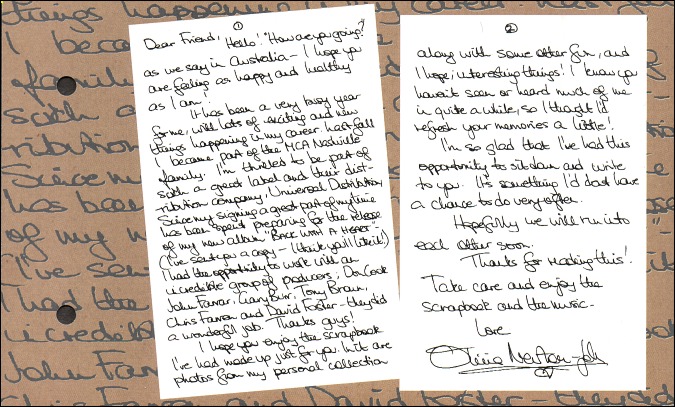 ①
Dear Friend, Hello! "How are you going?"
as we say in Australia - I hope you
are feeling as happy and healthy
as I am!
It has been a very busy year
for me, with lots of exciting and new
things happening in my career. Last fall
I became part of the MCA Nashville
family. I'm thrilled to be part of
such a great label and their dist-
ribution company, Universal Distribution.
Since my signing a great part of my time
has been spent preparing for the release
of my new album "Back With A Heart" -
(I've sent you a copy - I think you'll like it!)
I had the opportunity to work with an
incredible group of producers; Don Cook
John Farrar, Gary Burr, Tony Brown,
Chris Farren and David Foster - they did
a wonderful job. Thanks guys!
I hope you enjoy the scrapbook
I've had made up just for you. In it are
photos from my personal collection
②
along with some other fun, and
I hope, interesting things! I know you
haven't seen or heard much of me
in quite a while, so I thought I'd
refresh your memories a little!
I'm so glad that I've had this
opportunity to sit down and write
to you. It's something I don't have
a chance to do very often.
Hopefully we will run into
each other soon.
Thanks for reading this!
Take care and enjoy the
scrapbook and the music -
Love
Olivia Newton-John
things happening in my career. Last fall
I beca
family.
such a
ribution
Since m
has been
of my n
I've sen
I had the
incredible
John Farrar
Chris Farren and David Foster - they did